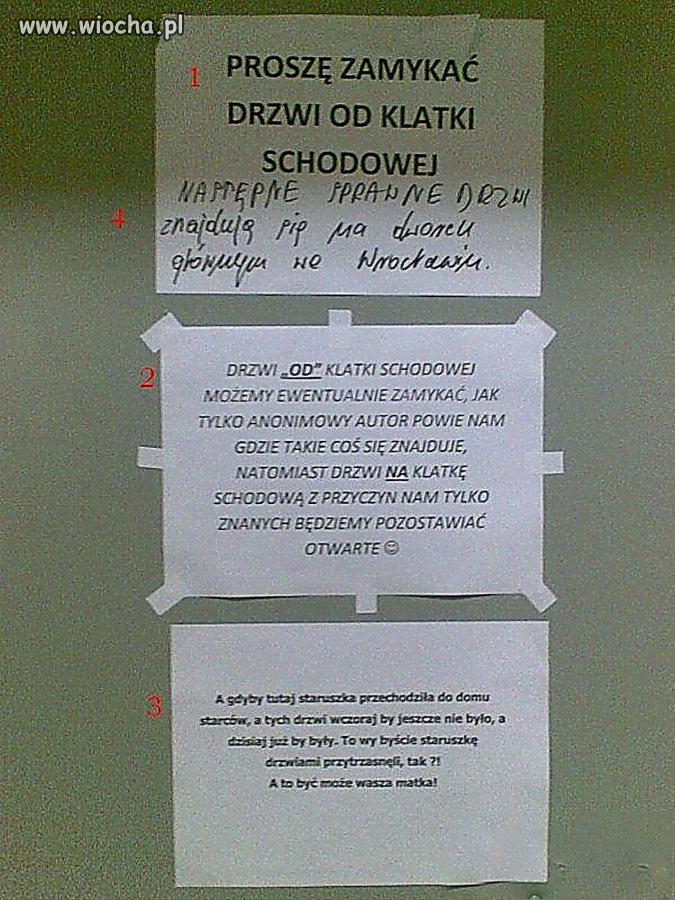 www.wiocha.pl
1
PROSZĘ ZAMYKAĆ
DRZWI OD KLATKI
SCHODOWEJ
NASTĘPNE SPRAWNE DRZWI
4
znajdują się na dworcu
głównym we Wrocławiu.
2
DRZWI „OD” KLATKI SCHODOWEJ
MOŻEMY EWENTUALNIE ZAMYKAĆ, JAK
TYLKO ANONIMOWY AUTOR POWIE NAM
GDZIE TAKIE COŚ SIĘ ZNAJDUJE,
NATOMIAST DRZWI NA KLATKĘ
SCHODOWĄ Z PRZYCZYN NAM TYLKO
ZNANYCH BĘDZIEMY POZOSTAWIAĆ
OTWARTE ☺
3
A gdyby tutaj staruszka przechodziła do domu
starców, a tych drzwi wczoraj by jeszcze nie było, a
dzisiaj już by były. To wy byście staruszkę
drzwiami przytrzasnęli, tak ?!
A to być może wasza matka!